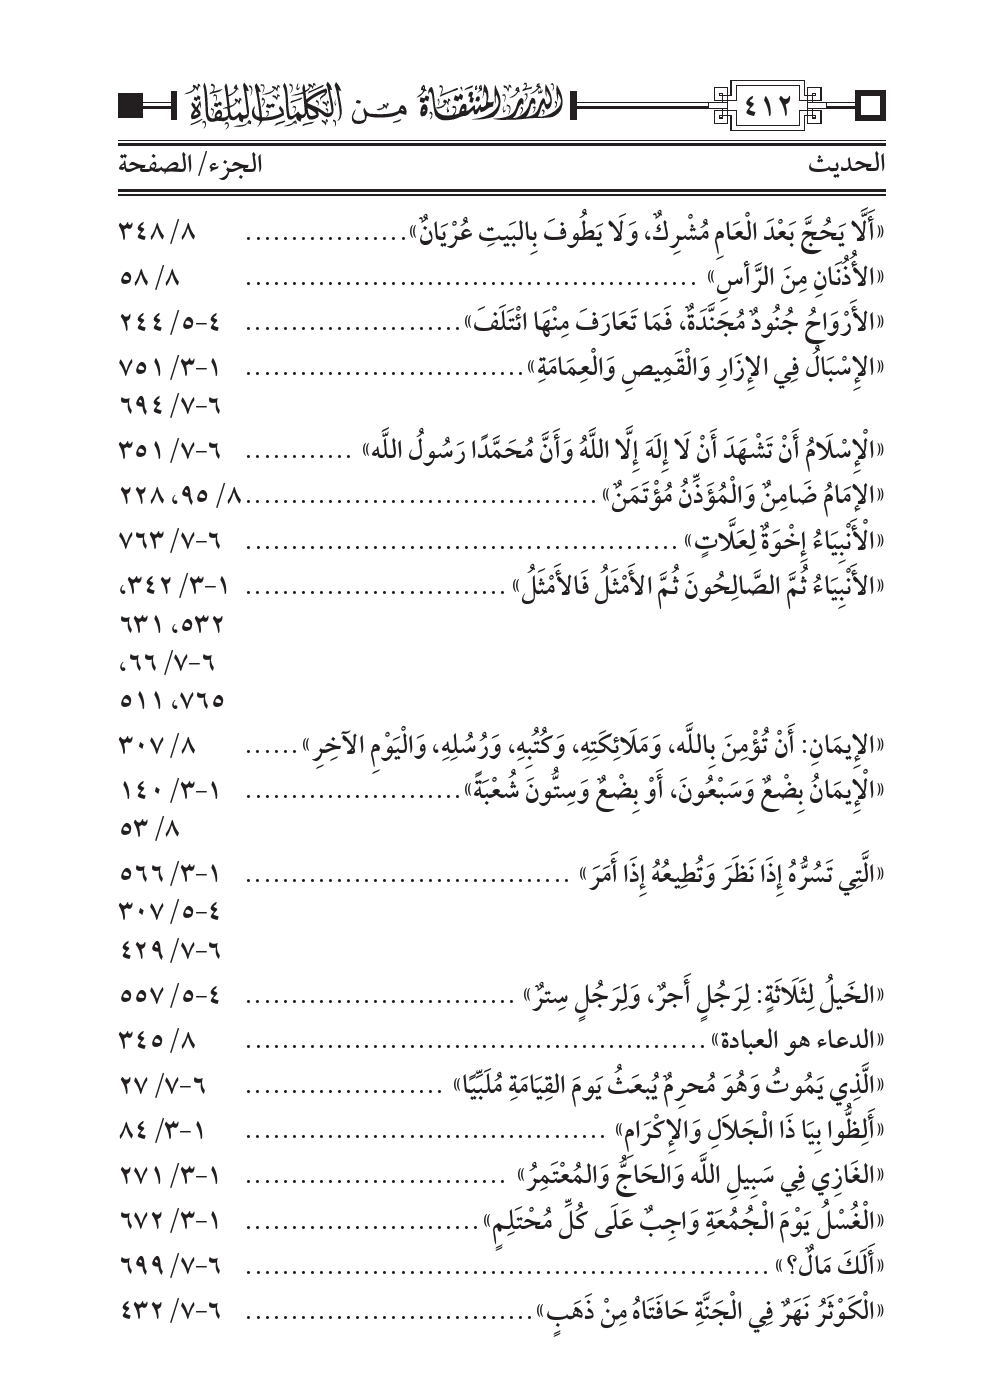 ٤١٢ الدرر المنتقاة من الكلمات الملقاة
الحديث الجزء/ الصفحة
«أَلَّا يَحُجَّ بَعْدَ الْعَامِ مُشْرِكٌ، وَلَا يَطُوفَ بِالبَيتِ عُرْيَانٌ» .................. ٨/ ٣٤٨
«الأُذُنَانِ مِنَ الرَّأسِ» .................................................. ٨/ ٥٨
«الأَرْوَاحُ جُنُودٌ مُجَنَّدَةٌ، فَمَا تَعَارَفَ مِنْهَا ائْتَلَفَ» ........................ ٤-٥/ ٢٤٤
«الإِسْبَالُ فِي الإِزَارِ وَالْقَمِيصِ وَالْعِمَامَةِ» ............................... ١-٣/ ٧٥١
٦-٧/ ٦٩٤
«الْإِسْلَامُ أَنْ تَشْهَدَ أَنْ لَا إِلَهَ إِلَّا اللَّهُ وَأَنَّ مُحَمَّدًا رَسُولُ اللَّه» ............ ٦-٧/ ٣٥١
«الإمَامُ ضَامِنٌ وَالْمُؤَذِّنُ مُؤْتَمَنٌ» ....................................... ٨/ ٩٥، ٢٢٨
«الْأَنْبِيَاءُ إِخْوَةٌ لِعَلَّاتٍ» ................................................ ٦-٧/ ٧٦٣
«الأَنْبِيَاءُ ثُمَّ الصَّالِحُونَ ثُمَّ الأَمْثَلُ فَالأَمْثَلُ» ............................. ١-٣/ ٣٤٢،
٥٣٢، ٦٣١
٦-٧/ ٦٦،
٧٦٥، ٥١١
«الإِيمَانِ: أَنْ تُؤْمِنَ بِاللَّه، وَمَلَائِكَتِهِ، وَكُتُبِهِ، وَرُسُلِهِ، وَالْيَوْمِ الآخِرِ» ...... ٨/ ٣٠٧
«الْإِيمَانُ بِضْعٌ وَسَبْعُونَ، أَوْ بِضْعٌ وَسِتُّونَ شُعْبَةً» ........................ ١-٣/ ١٤٠
٨/ ٥٣
«الَّتِي تَسُرُّهُ إِذَا نَظَرَ وَتُطِيعُهُ إِذَا أَمَرَ» .................................... ١-٣/ ٥٦٦
٤-٥/ ٣٠٧
٦-٧/ ٤٢٩
«الخَيلُ لِثَلَاثَةٍ: لِرَجُلٍ أَجرٌ، وَلِرَجُلٍ سِترٌ» .............................. ٤-٥/ ٥٥٧
«الدعاء هو العبادة» ................................................... ٨/ ٣٤٥
«الَّذِي يَمُوتُ وَهُوَ مُحرِمٌ يُبعَثُ يَومَ القِيَامَةِ مُلَبِّيًا» ...................... ٦-٧/ ٢٧
«أَلِظُّوا بِيَا ذَا الْجَلاَلِ وَالإِكْرَامِ» ........................................ ١-٣/ ٨٤
«الغَازِي فِي سَبِيلِ اللَّه وَالحَاجُّ وَالمُعْتَمِرُ» ............................. ١-٣/ ٢٧١
«الْغُسْلُ يَوْمَ الْجُمُعَةِ وَاجِبٌ عَلَى كُلِّ مُحْتَلِمٍ» .......................... ١-٣/ ٦٧٢
«أَلَكَ مَالٌ؟» .......................................................... ٦-٧/ ٦٩٩
«الْكَوْثَرُ نَهَرٌ فِي الْجَنَّةِ حَافَتَاهُ مِنْ ذَهَبٍ» ................................ ٦-٧/ ٤٣٢